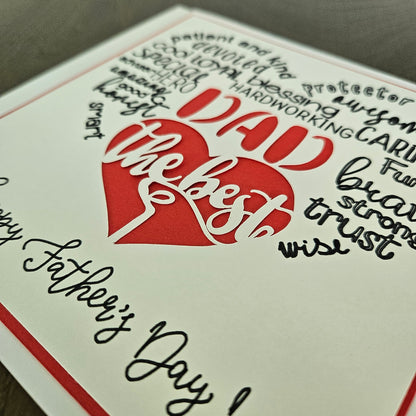 patient and kind
devoted protector
cool loyal blessing awesome
Special HARDWORKING CARI
HERO
amazing
good
helpful
smart
DAD
the best
Fun
brav
strong
trust
wise
Happy Father's Day!